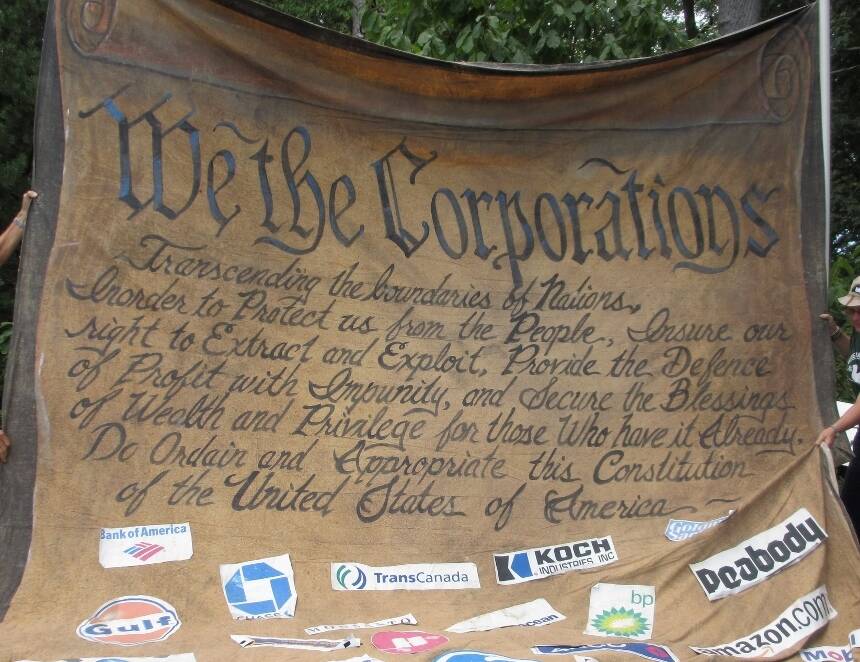 We the Corporations
Transcending the boundaries of Nations,
Inorder to Protect us from the People, Insure our
right to Extract and Exploit, Provide the Defence
of Profit with Impunity, and Secure the Blessings
of Wealth and Privilege for those Who have it Already.
Do Ordain and Appropriate this Constitution
of the United States of America
Bank of America
CHASE
TransCanada
KOCH
INDUSTRIES, INC
Peabody
Gulf
MONSANTO
bp
amazon.com